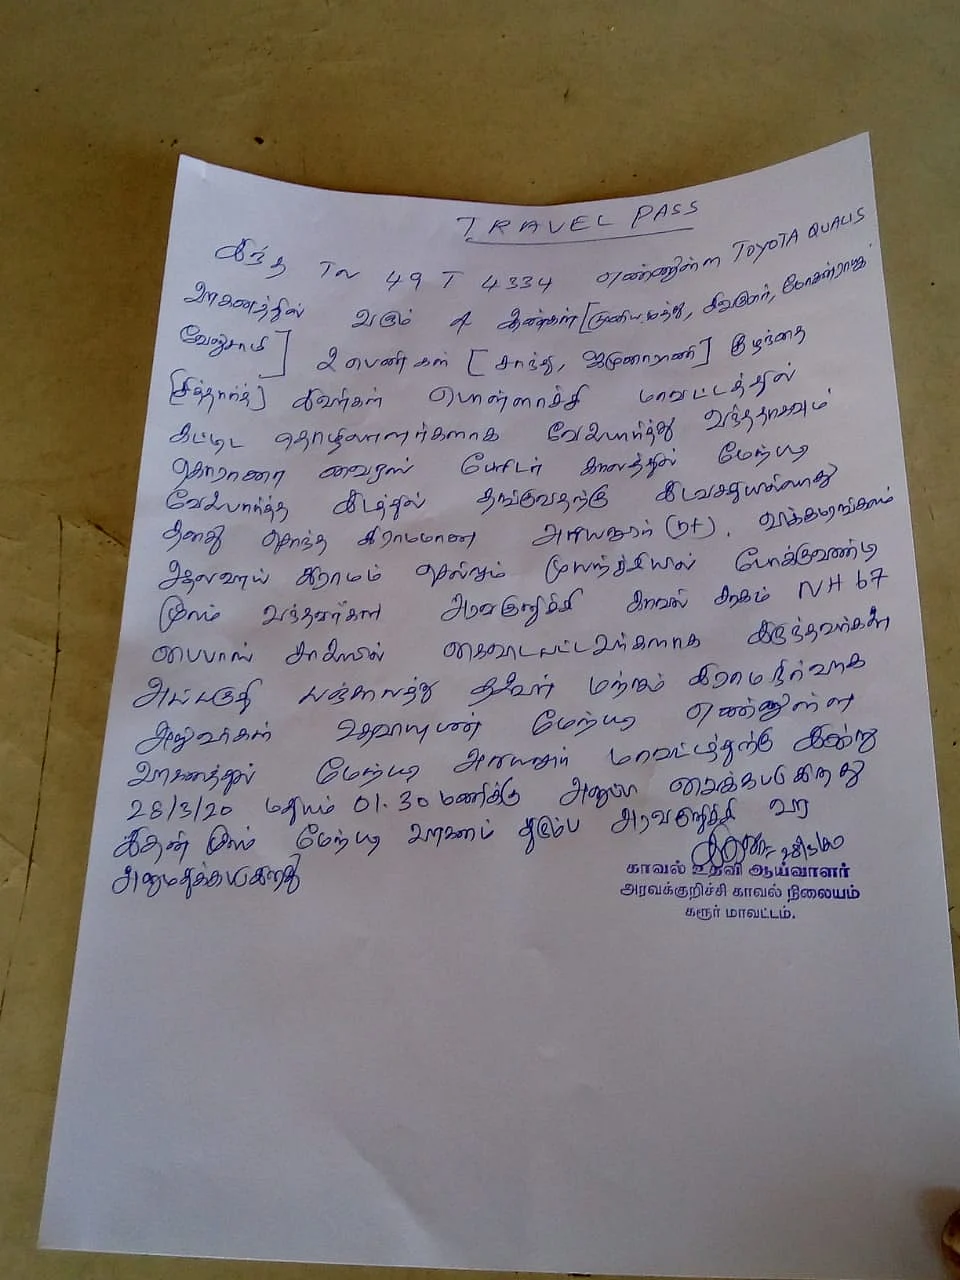 TRAVEL PASS
இந்த TN 49 T 4334 எண்ணுள்ள TOYOTA QUALIS
வாகனத்தில் வரும் 4 ஆண்கள் [முனியமுத்து, சிவகுமார்,
வேலுச்சாமி] 2 பெண்கள் [சாந்து, ஜமுனாராணி] குழந்தை
[சித்தார்த்] இவர்கள் பொள்ளாச்சி மாவட்டத்தில்
கட்டிட தொழிலாளர்களாக வேலைபார்த்து வந்ததாகவும்
கொரானா வைரஸ் பேரிடர் காலத்தில் மேற்படி
வேலைபார்த்த இடத்தில் தங்குவதற்கு இடவசதியில்லாது
தனது சொந்த கிராமமான அரியலூர் (மா).
கிராமம் செல்லும் முயற்ச்சியில் போக்குவண்டி
மூலம் வந்தவர்கள் அரவகுறிச்சி காவல் சரகம் NH 67
பைபாஸ் சாலையில் கைவிடபட்டவர்களாக இருந்தவர்கள்
அப்பகுதி பஞ்சாயத்து தலைவர் மற்றும் கிராம நிர்வாக
அலுவர்கள் உதவியுடன் மேற்படி எண்ணுள்ள
வாகனத்தில் மேற்படி அரியலூர் மாவட்டத்திற்கு இன்று
28/3/20 மதியம் 01.30 மணிக்கு அனுப்பி வைக்கபடுகிறது
இதன் மூலம் மேற்படி வாகனம் திரும்ப அரவகுறிச்சி வர
அனுமதிக்கபடுகிறது
28/3/20
காவல் உதவி ஆய்வாளர்
அரவக்குறிச்சி காவல் நிலையம்
கரூர் மாவட்டம்.